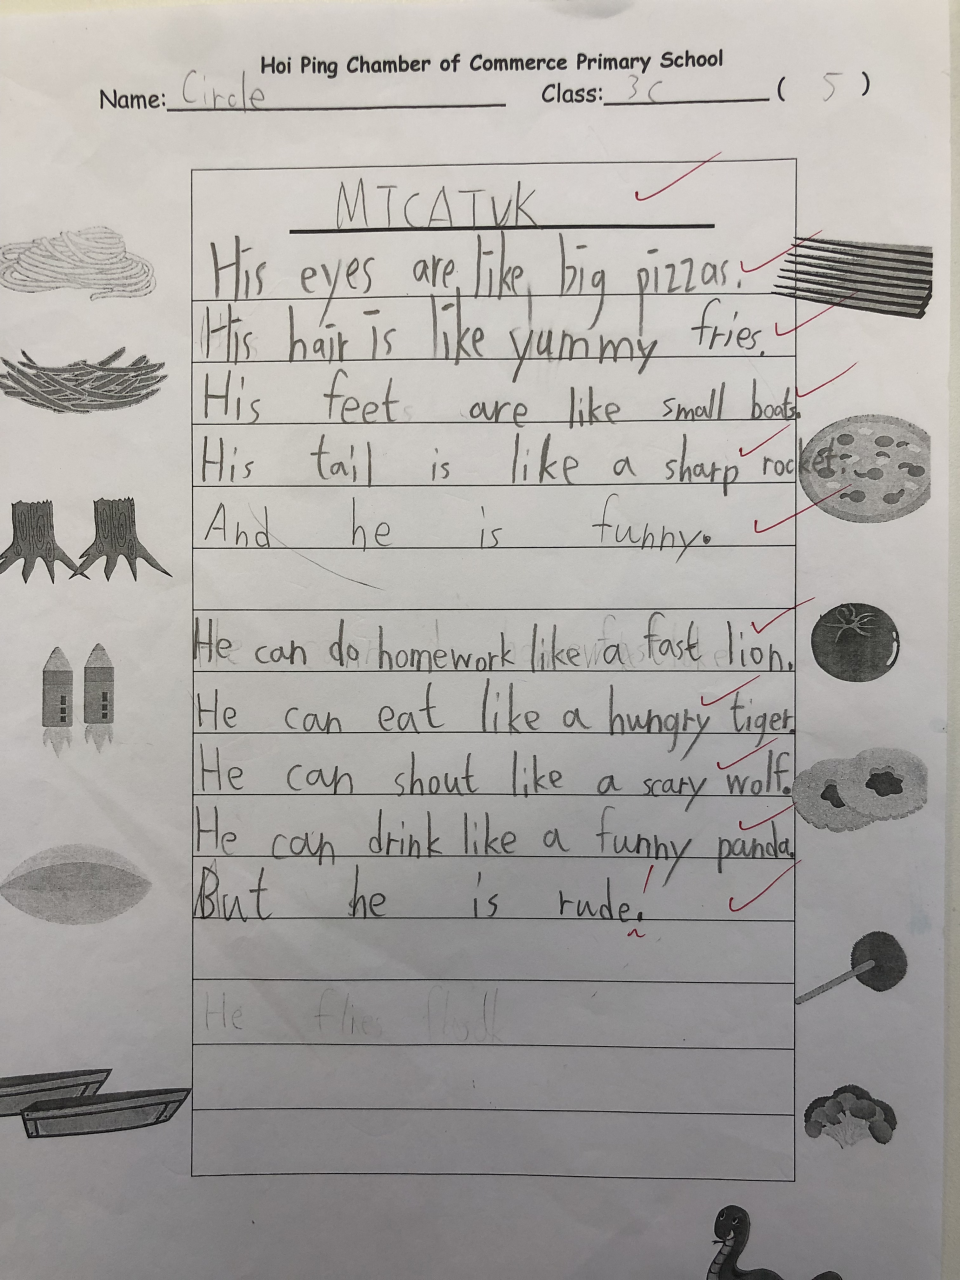 Hoi Ping Chamber of Commerce Primary School
Name: Circle Class: 3C ( 5 )
MTCATVK
His eyes are like big pizzas.
His hair is like yummy fries.
His feet are like small boats.
His tail is like a sharp rocket.
And he is funny.
He can do homework like a fast lion.
He can eat like a hungry tiger.
He can shout like a scary wolf.
He can drink like a funny panda.
But he is rude.!
He flies